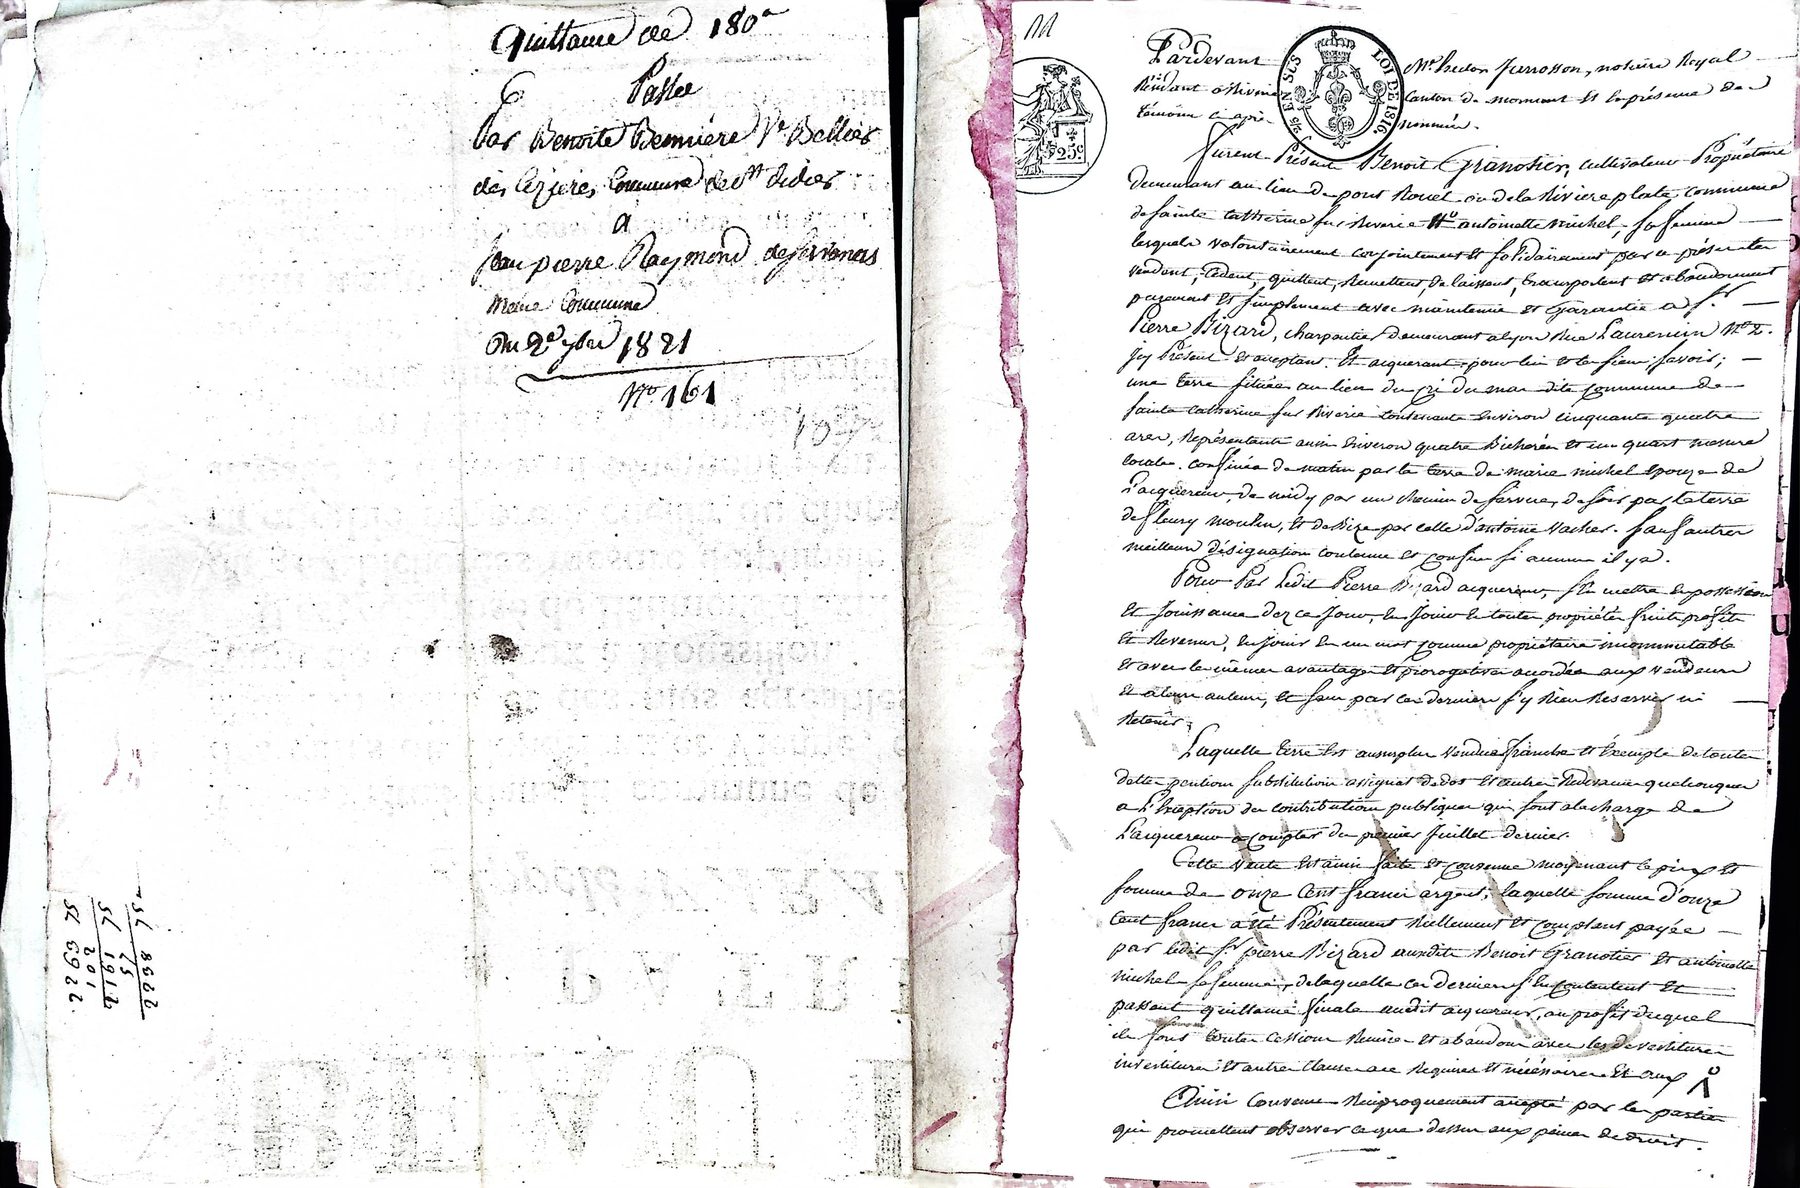 Quittance de 180ᵃ
Passée
Par Benoite Vᵉ Bellier
des Commune de Sᵗ didier
A
Jean pierre Raymond
Meme Commune
Du 2ᵉ 7bre 1821
Nº 161
8662
75
1912
201
6922
25 EN SUS LOI DE 1816.
25ᶜ
Pardevant Mᵉ notaire Royal
Résidant à Riverie Canton de mornant Et En présence des
témoins ci après nommés.
Furent Présent Benoit Granotier, cultivateur Propriétaire
demeurant au lieu de pont Rouel ou de la Rivière plate, commune
de Sainte Catherine sur Riverie Et antoinette michel, sa femme
lesquels volontairement conjointement et solidairement par ces présentes
vendent, Cedent, quittent, Remettent, delaissent, transportent et abandonnent
purement Et simplement avec maintenue Et Garantie a Sʳ
Pierre Bizard, charpentier demeurant a Lyon Rue Laurencin Nº 2.
icy Présent Et acceptant. Et acquerant pour lui et les siens, Savoir;
une terre située au lieu du commune de
Sainte Catherine sur Riverie Contenante Environ cinquante quatre
ares, Représentants aussi Environ quatre Bicherées Et un quart mesure
locale. confinée de matin par la terre de marie michel Epouze de
L'acquereur, de midy par un chemin de service, de soir par la terre
de fleury moulin, Et de Bize par celle d'antoine vacher. Sauf autres
meilleurs désignation contenue et confins si aucuns il y a.
Pour Par Ledit Pierre Bizard acquereur, s'En mettre En possession
Et Jouissance dez ce Jour, En Jouir En toutes propriétés fruits profits
Et Revenus, En Jouir En un mot comme propriétaire incommutable
Et avec les mêmes avantages Et prerogatives accordées aux vendeurs
Et a leurs auteurs, Et sans par ces derniers s'y Rien Reserver ni
Retenir.
Laquelle terre Est au surplus vendue franche Et Exempte de toutes
dettes pentions substitutions assignat de dot Et autres Redevances quelconques
a L'Exception des contributions publiques qui sont a la charge de
L'acquereur a compter du premier Juillet dernier.
Cette vente Est ainsi faite Et convenue moyenant le prix Et
somme de onze Cent francs argent, laquelle somme d'onze
Cent francs a été Présentement Réellement Et comptant payée
par ledit Sʳ pierre Bizard auxdits Benoit Granotier Et antoinette
michel sa femme, de laquelle ces derniers s'En contentent Et
passent quittance finale audit acquereur, au profit duquel
ils font toutes Cessions Remises Et abandon avec les devestitures
investitures Et autres Clauses a ce Requises Et nécéssaires Et aux
Ainsi Convenu Réciproquement accepté par les parties
qui promettent observer ce que dessus aux peines de droit.